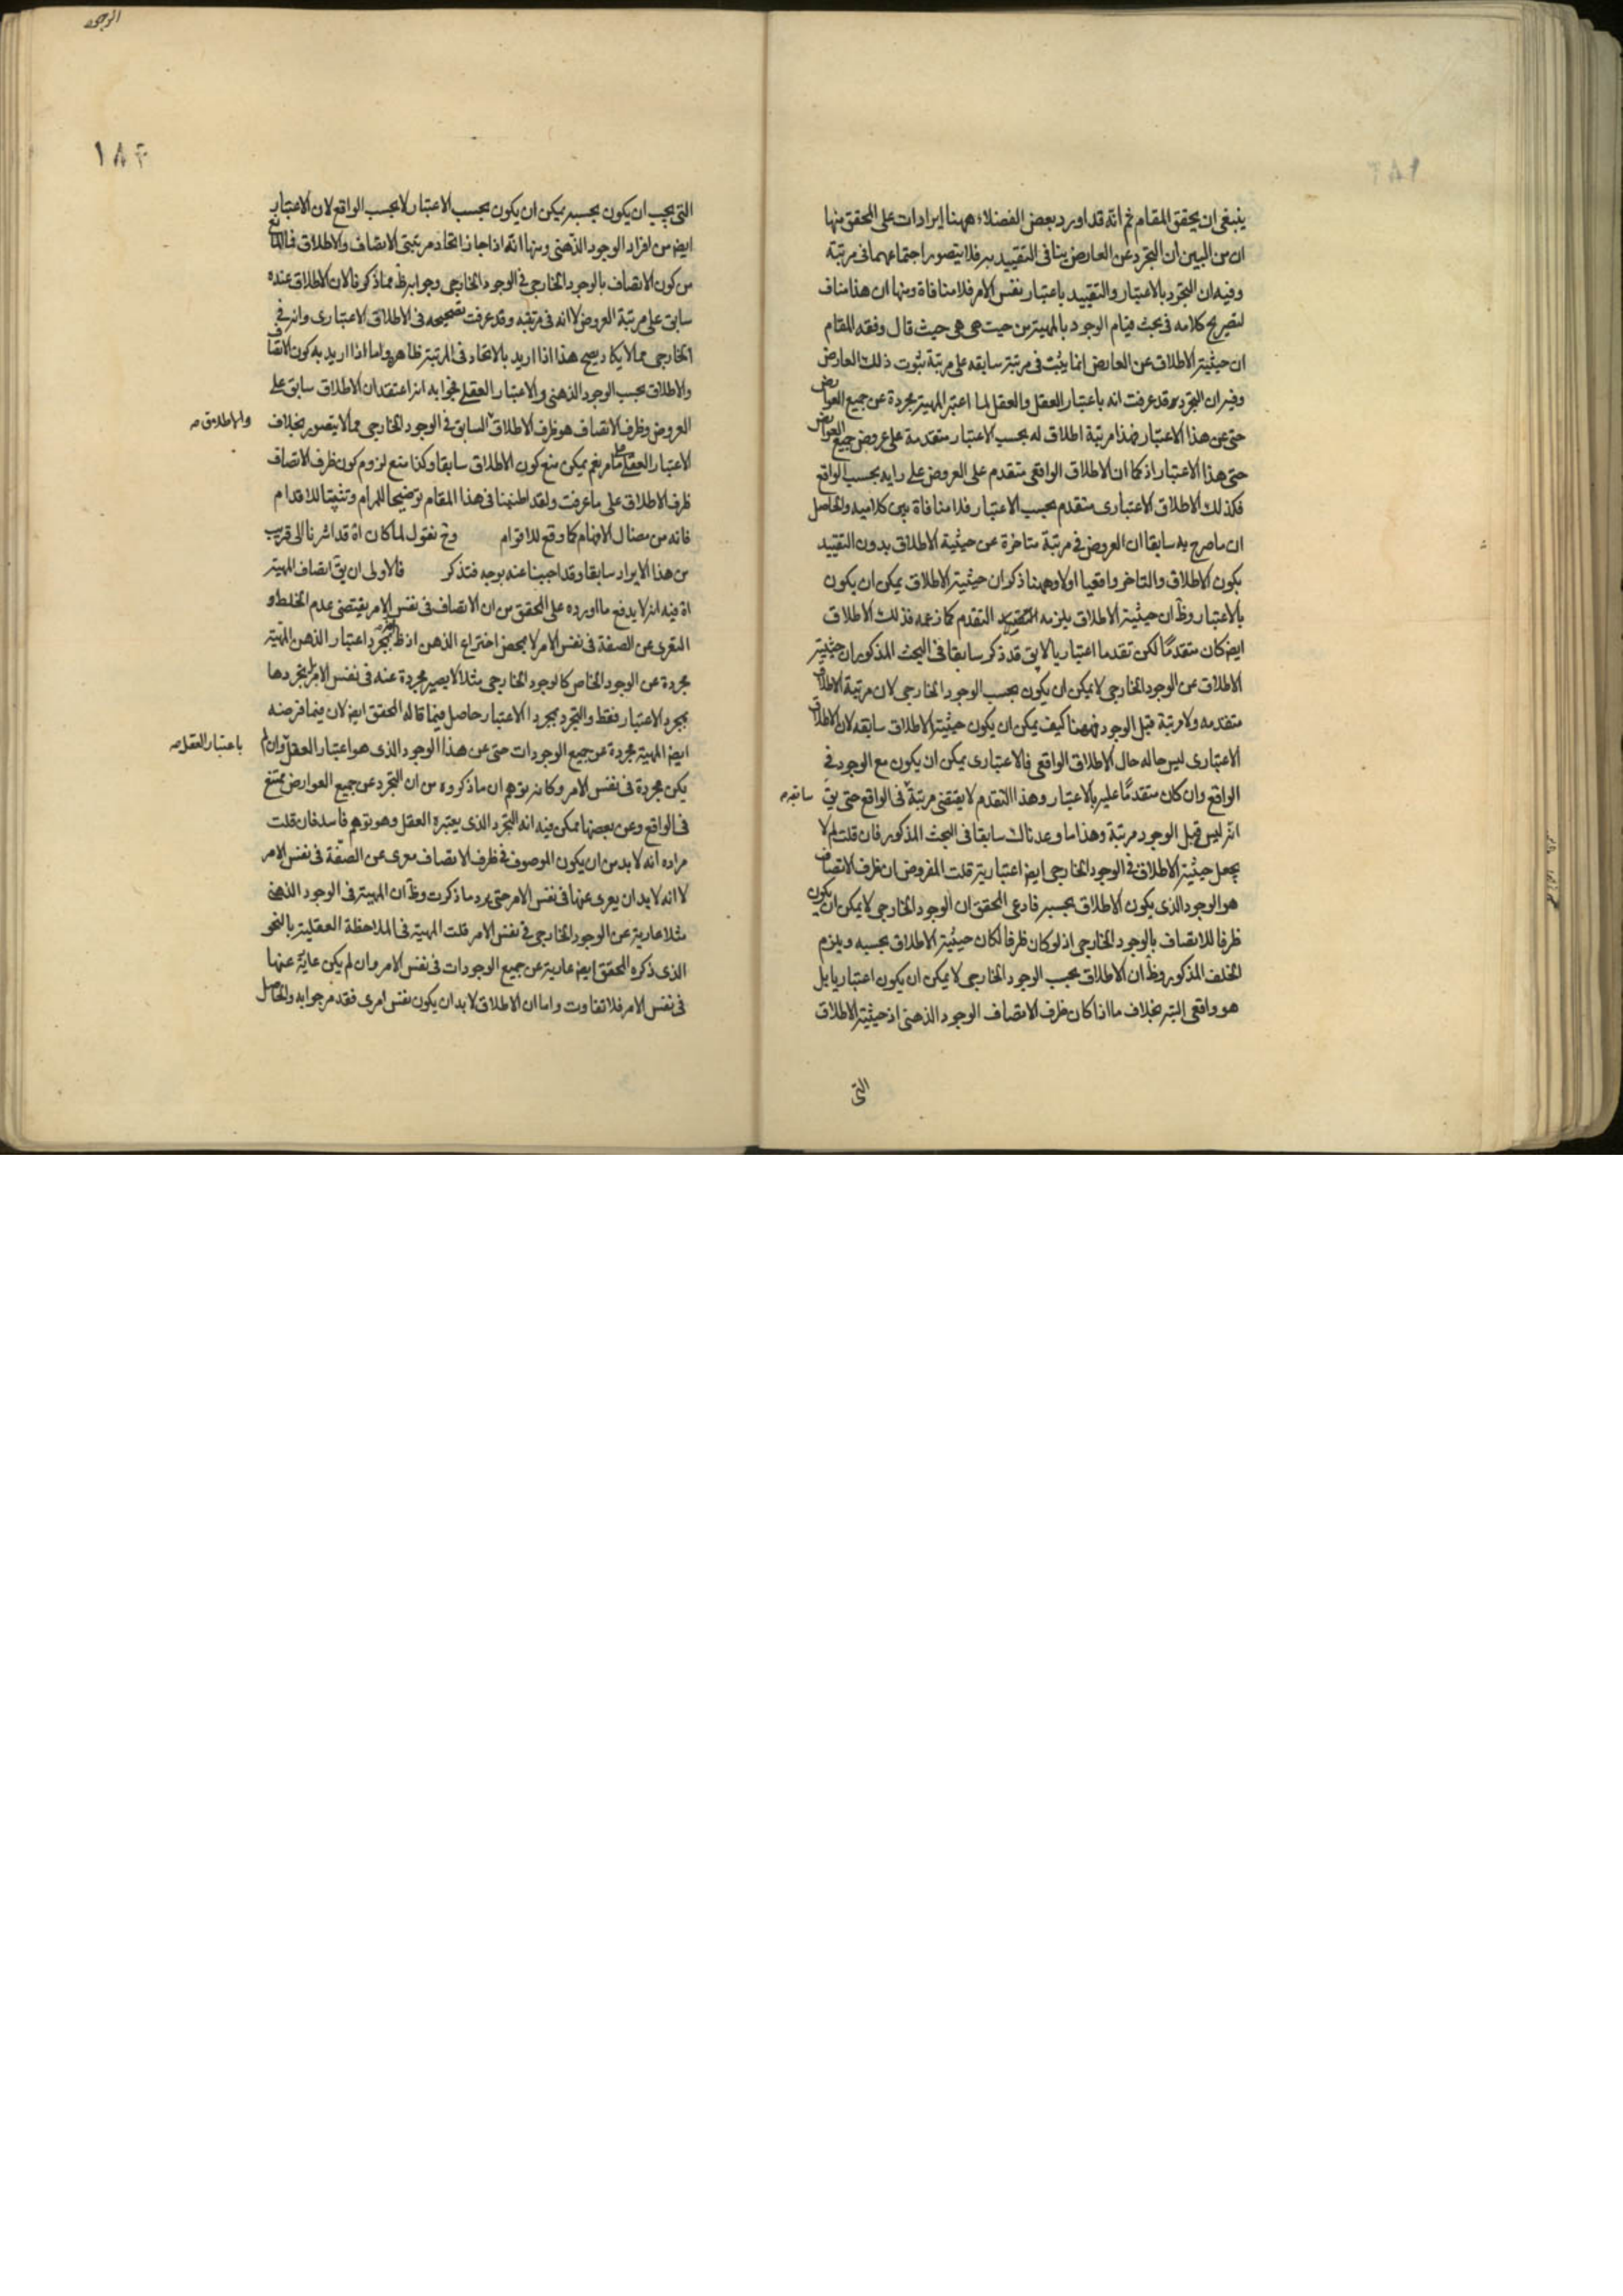 ينبغى ان يحقق المقام ثم انه قد اورد بعض الفضلاء ههنا ايرادات على المحقق منها
ان من البين ان التجرد عن العارض ينافى التقييد به فلا يتصور اجتماعهما فى مرتبة
وفيه ان التجرد بالاعتبار والتقييد باعتبار نفس الامر فلا منافاة ومنها ان هذا مناف
لتصريح كلامه فى بحث قيام الوجود بالمهية من حيث هى هى حيث قال وفقه المقام
ان حيثية الاطلاق عن العارض انما يثبت فى مرتبة سابقه على مرتبة ثبوت ذلك العارض
وفيه ان التجرد قد عرفت انه باعتبار العقل والعقل لما اعتبر المهية مجردة عن جميع العوارض
حتى عن هذا الاعتبار فهذا مرتبة اطلاق له بحسب الاعتبار متقدمة على عروض جميع العوارض
حتى هذا الاعتبار اذ كما ان الاطلاق الواقعى متقدم على العروض على رايه بحسب الواقع
فكذلك الاطلاق الاعتبارى متقدم بحسب الاعتبار فلا منافاة بين كلاميه والحاصل
ان ما صرح به سابقا ان العروض فى مرتبة متاخرة عن حيثية الاطلاق بدون التقييد
بكون الاطلاق والتاخر واقعيا اولا وههنا ذكر ان حيثية الاطلاق يمكن ان يكون
بالاعتبار وظ ان حيثية الاطلاق يلزمه التقدم كما زعمه فذلك الاطلاق
ايض كان متقدمًا لكن تقدما اعتباريا لا يق قد ذكر سابقا فى البحث المذكور ان حيثية
الاطلاق عن الوجود الخارجى لا يمكن ان يكون بحسب الوجود الخارجى لان مرتبة الاطلاق
متقدمه ولا مرتبة قبل الوجود فههنا كيف يمكن ان يكون حيثية الاطلاق سابقه لان الاطلاق
الاعتبارى ليس حاله حال الاطلاق الواقعى فالاعتبارى يمكن ان يكون مع الوجود فى
الواقع وان كان متقدمًا عليه بالاعتبار وهذا التقدم لا يقتضى مرتبة فى الواقع حتى يق
سابقه
انه ليس قبل الوجود مرتبة وهذا ما وعدناك سابقا فى البحث المذكور فان قلت لم لا
يجعل حيثية الاطلاق فى الوجود الخارجى ايض اعتبارية قلت المفروض ان ظرف الاتصاف
هو الوجود الذى يكون الاطلاق بحسبه فادعى المحقق ان الوجود الخارجى لا يمكن ان يكون
ظرفا للاتصاف بالوجود الخارجى اذ لو كان ظرفا لكان حيثية الاطلاق بحسبه ويلزم
الخلف المذكور وظ ان الاطلاق بحسب الوجود الخارجى لا يمكن ان يكون اعتباريا بل
هو واقعى البته بخلاف ما اذا كان ظرف الاتصاف الوجود الذهنى اذ حيثية الاطلاق
التى
التى يجب ان يكون بحسبه يمكن ان يكون بحسب الاعتبار لا بحسب الواقع لان الاعتبار
ايض من افراد الوجود الذهنى ومنها انه اذا جاز اتحاد مرتبتى الاتصاف والاطلاق فما المانع
من كون الاتصاف بالوجود الخارجى فى الوجود الخارجى وجوابه ظ مما ذكر فالان الاطلاق عنده
سابق على مرتبة العروض لا انه فى مرتبته وقد عرفت تصحيحه فى الاطلاق الاعتبارى وانه فى
الخارجى مما لا يكاد يصح هذا اذا اريد بالاتحاد فى المرتبة ظاهره واما اذا اريد به كون الاتصاف
والاطلاق بحسب الوجود الذهنى والاعتبار العقلى فجوابه انه اعتقد ان الاطلاق سابق على
العروض وظرف الاتصاف هو ظرف الاطلاق السابق فى الوجود الخارجى مما لا يتصور بخلاف
والاطلاق
الاعتبار العقلى على ما مر نعم يمكن منع كون الاطلاق سابقا وكذا منع لزوم كون ظرف الاتصاف
ظرف الاطلاق على ما عرفت ولقد اطنبنا فى هذا المقام توضيحا للمرام وتثبيتا للاقدام
فانه من مضال الافهام كما وقع للاقوام وح نقول لما كان اة قد اشرنا الى قريب
من هذا الايراد سابقا وقد اجبنا عنه بوجه فتذكر فالاولى ان يق اتصاف المهية
اة فيه انه لا يدفع ما اورده على المحقق من ان الاتصاف فى نفس الامر يقتضى عدم الخلط و
التعرى عن الصفة فى نفس الامر لا بمحض اختراع الذهن اذ ظ بمجرد اعتبار الذهن المهية
مجردة عن الوجود الخاص كالوجود الخارجى مثلا لا يصير مجردة عنه فى نفس الامر بل تجردها
بمجرد الاعتبار فقط والتجرد بمجرد الاعتبار حاصل فيما قاله المحقق ايض لان فيما فرضه
ايض المهية مجردة عن جميع الوجودات حتى عن هذا الوجود الذى هو اعتبار العقل وان لم
باعتبار العقل
يكن مجردة فى نفس الامر وكانه توهم ان ما ذكروه من ان التجرد عن جميع العوارض ممتنع
فى الواقع وعن بعضها ممكن فيه انه التجرد الذى يعتبره العقل وهو توهم فاسد فان قلت
مراده انه لا بد من ان يكون الموصوف فى ظرف الاتصاف معرى عن الصفة فى نفس الامر
لا انه لا بد ان يعرى عنها فى نفس الامر حتى يرد ما ذكرت وظ ان المهية فى الوجود الذهنى
مثلا عارية عن الوجود الخارجى فى نفس الامر قلت المهية فى الملاحظة العقلية بالنحو
الذى ذكره المحقق ايض عارية عن جميع الوجودات فى نفس الامر وان لم يكن عارية عنها
فى نفس الامر فلا تفاوت واما ان الاطلاق لا بد ان يكون نفس امرى فقد مر جوابه والحاصل